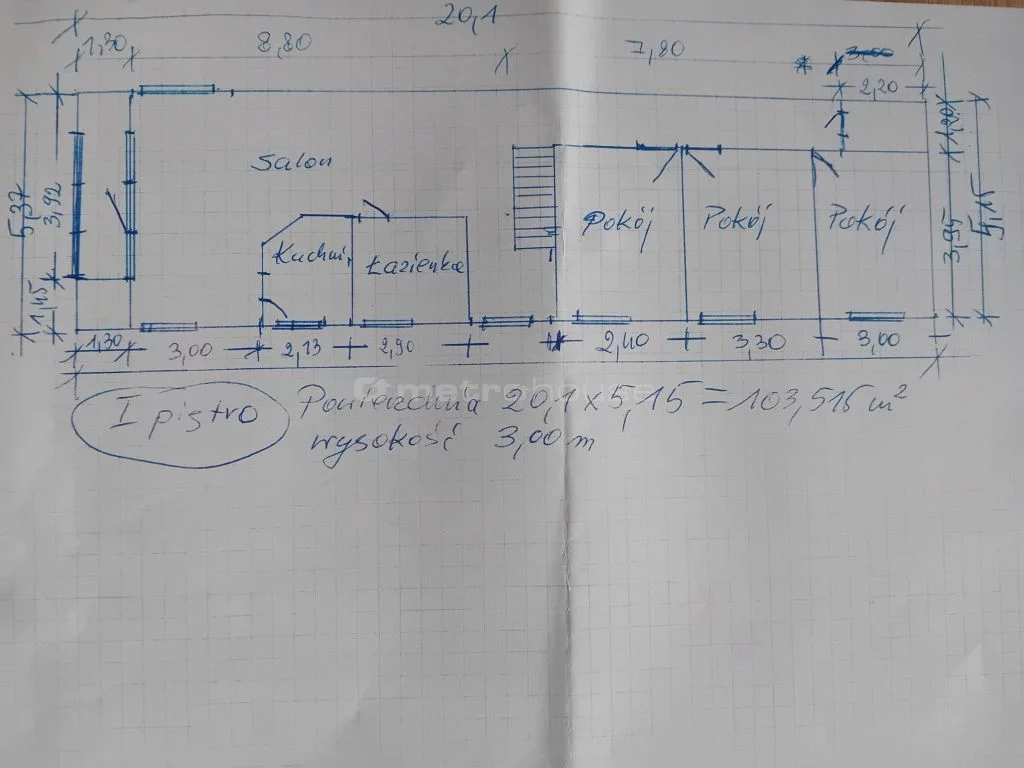 20,1
1,30 8,80 7,80 3,00
* 2,20
5,37 3,92 1,45
Salon
Kuchni,
Łazienka
Pokój Pokój Pokój
1,20 3,95 5,15
1,30 3,00 2,13 2,90 2,40 3,30 3,00
metrohouse
I piętro
Powierzchnia 20,1 x 5,15 = 103,515 m²
wysokość 3,00 m